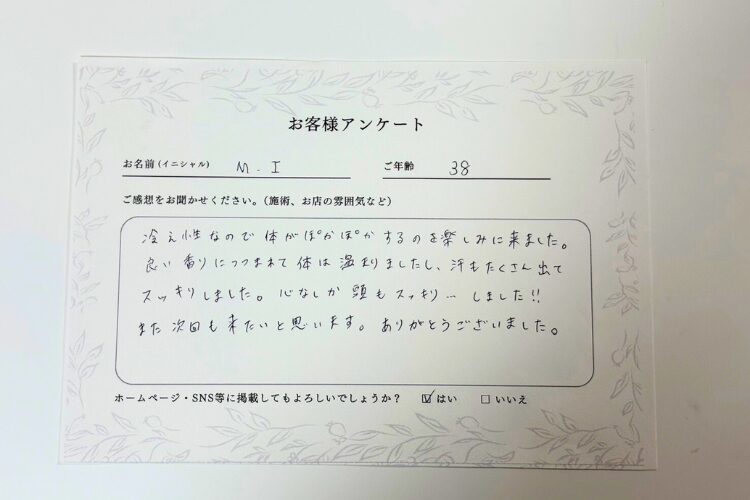 お客様アンケート
お名前(イニシャル) M.I ご年齢 38
ご感想をお聞かせください。(施術、お店の雰囲気など)
冷え性なので体がぽかぽかするのを楽しみに来ました。
良い香りにつつまれて体は温まりましたし、汗もたくさん出て
スッキリしました。心なしか頭もスッキリ…しました!!
また次回も来たいと思います。ありがとうございました。
ホームページ・SNS等に掲載してもよろしいでしょうか? ☑はい □いいえ